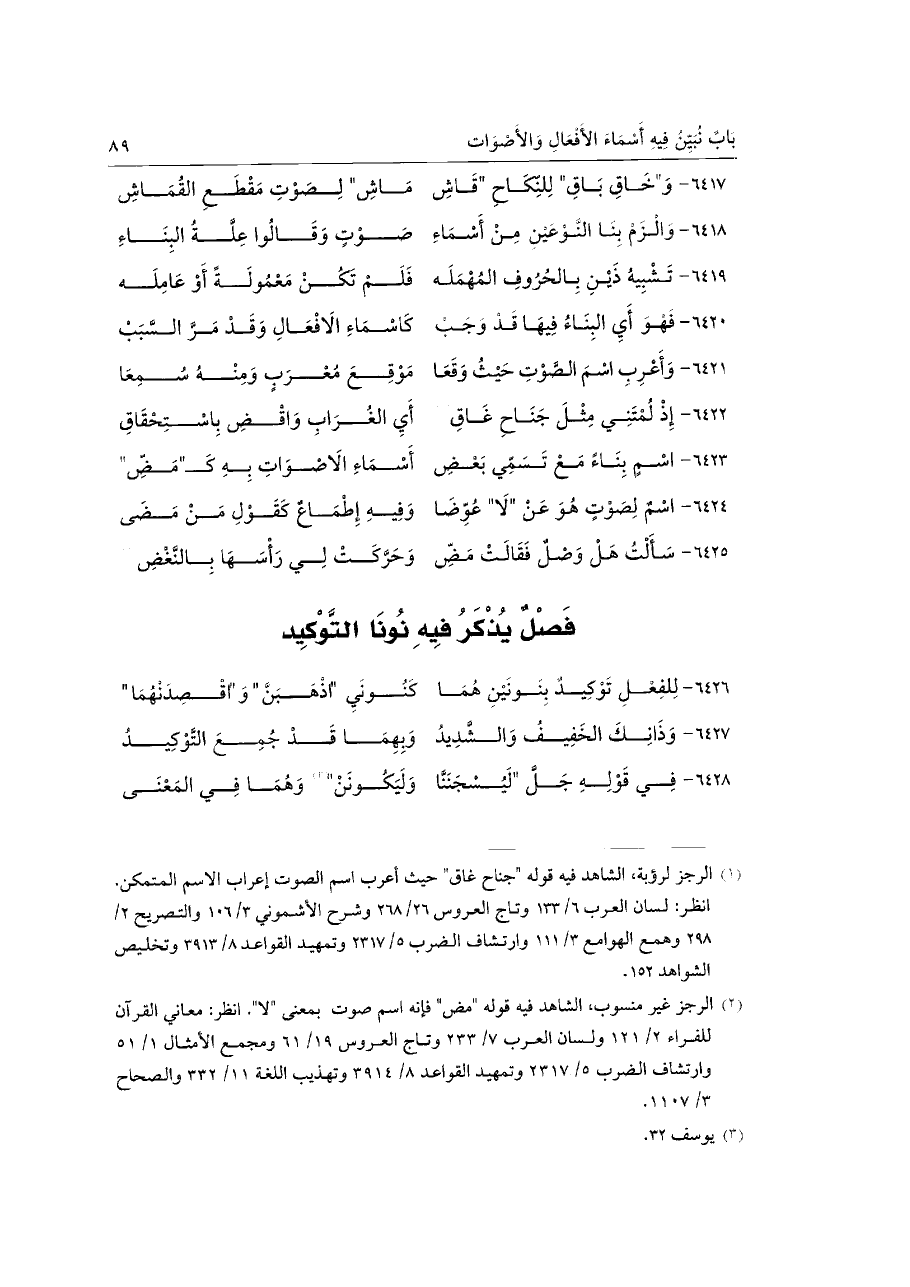 بَابٌ نُبَيِّنُ فِيهِ أَسْمَاءَ الأَفْعَالِ وَالأَصْوَات ٨٩
٦٤١٧- وَ"خَاقِ بَاقِ" لِلنِّكَاحِ "قَاشِ مَاشِ" لِصَوْتِ مَقْطَعِ القُمَاشِ
٦٤١٨- وَالْزَمْ بِنَا النَّوْعَيْنِ مِنْ أَسْمَاءِ صَوْتٍ وَقَالُوا عِلَّةُ البِنَاءِ
٦٤١٩- تَشْبِيهُ ذَيْنِ بِالحُرُوفِ المُهْمَلَه فَلَمْ تَكُنْ مَعْمُولَةً أَوْ عَامِلَه
٦٤٢٠- فَهْوَ أَيِ البِنَاءُ فِيهَا قَدْ وَجَبْ كَاسْمَاءِ الَافْعَالِ وَقَدْ مَرَّ السَّبَبْ
٦٤٢١- وَأَعْرِبِ اسْمَ الصَّوْتِ حَيْثُ وَقَعَا مَوْقِعَ مُعْرَبٍ وَمِنْهُ سُمِعَا
٦٤٢٢- إِذْ لُمْتَنِي مِثْلَ جَنَاحِ غَاقِ أَيِ الغُرَابِ وَاقْضِ بِاسْتِحْقَاقِ
٦٤٢٣- اسْمٍ بِنَاءً مَعْ تَسَمِّي بَعْضِ أَسْمَاءِ الَاصْوَاتِ بِهِ كَـ"مَضِّ"
٦٤٢٤- اسْمٌ لِصَوْتٍ هُوَ عَنْ "لَا" عُوِّضَا وَفِيهِ إِطْمَاعٌ كَقَوْلِ مَنْ مَضَى
٦٤٢٥- سَأَلْتُ هَلْ وَصْلٌ فَقَالَتْ مَضِّ وَحَرَّكَتْ لِي رَأْسَهَا بِالنَّغْضِ
فَصْلٌ يُذْكَرُ فِيهِ نُونَا التَّوْكِيد
٦٤٢٦- لِلفِعْلِ تَوْكِيدٌ بِنُونَيْنِ هُمَا كَنُونَيِ "اذْهَبَنَّ" وَ"اقْصِدَنْهُمَا"
٦٤٢٧- وَذَانِكَ الخَفِيفُ وَالشَّدِيدُ وَبِهِمَا قَدْ جُمِعَ التَّوْكِيدُ
٦٤٢٨- فِي قَوْلِهِ جَلَّ "لَيُسْجَنَنَّا وَلَيَكُونَنْ" وَهُمَا فِي المَعْنَى
(١) الرجز لرؤبة، الشاهد فيه قوله "جناح غاق" حيث أعرب اسم الصوت إعراب الاسم المتمكن.
انظر: لسان العرب ٦/ ١٣٣ وتاج العروس ٢٦/ ٢٦٨ وشرح الأشموني ٣/ ١٠٦ والتصريح ٢/
٢٩٨ وهمع الهوامع ٣/ ١١١ وارتشاف الضرب ٥/ ٢٣١٧ وتمهيد القواعد ٨/ ٣٩١٣ وتخليص
الشواهد ١٥٢.
(٢) الرجز غير منسوب، الشاهد فيه قوله "مض" فإنه اسم صوت بمعنى "لا". انظر: معاني القرآن
للفراء ٢/ ١٢١ ولسان العرب ٧/ ٢٣٣ وتاج العروس ١٩/ ٦١ ومجمع الأمثال ١/ ٥١
وارتشاف الضرب ٥/ ٢٣١٧ وتمهيد القواعد ٨/ ٣٩١٤ وتهذيب اللغة ١١/ ٣٣٢ والصحاح
٣/ ١١٠٧.
(٣) يوسف ٣٢.